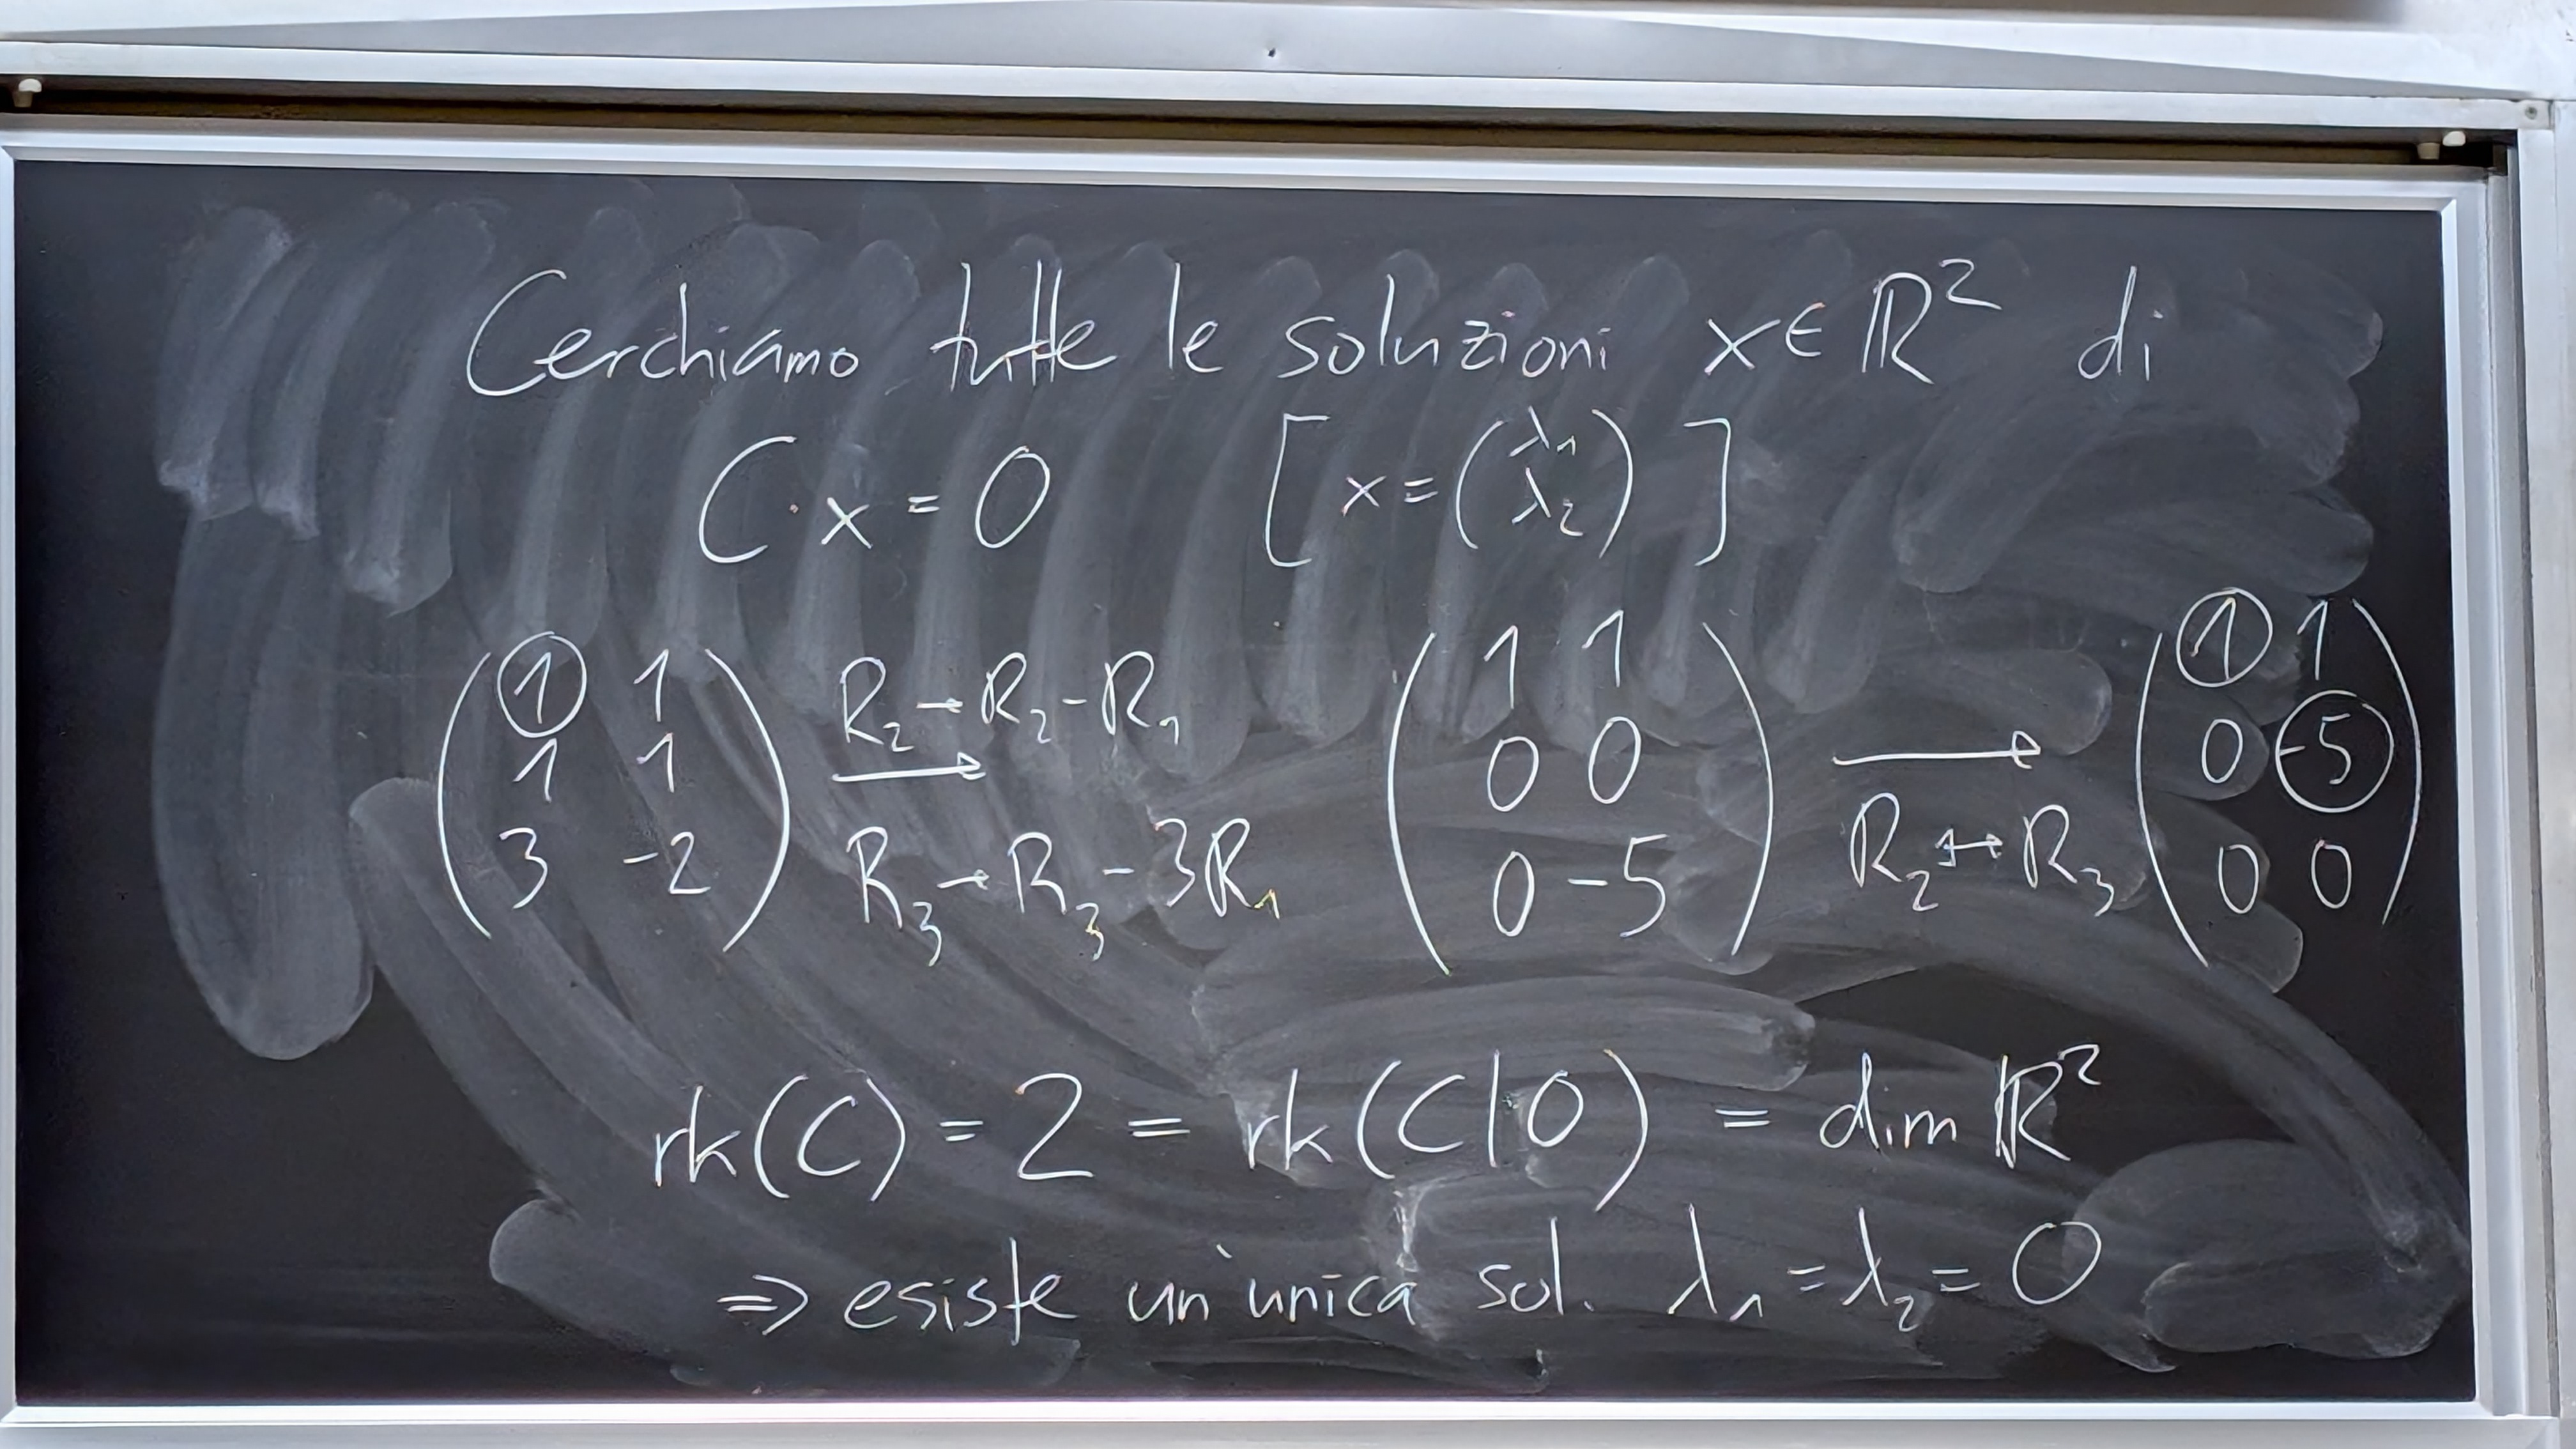 Cerchiamo tutte le soluzioni x ∈ ℝ² di
C · x = 0 [ x = (λ₁ λ₂) ]
(1 1; 1 1; 3 -2) R₂ → R₂ - R₁ ⟶ R₃ → R₃ - 3R₁ (1 1; 0 0; 0 -5) ⟶ R₂ ↔ R₃ (1 1; 0 -5; 0 0)
rk(C) = 2 = rk(C|0) = dim ℝ²
⇒ esiste un'unica sol. λ₁ = λ₂ = 0